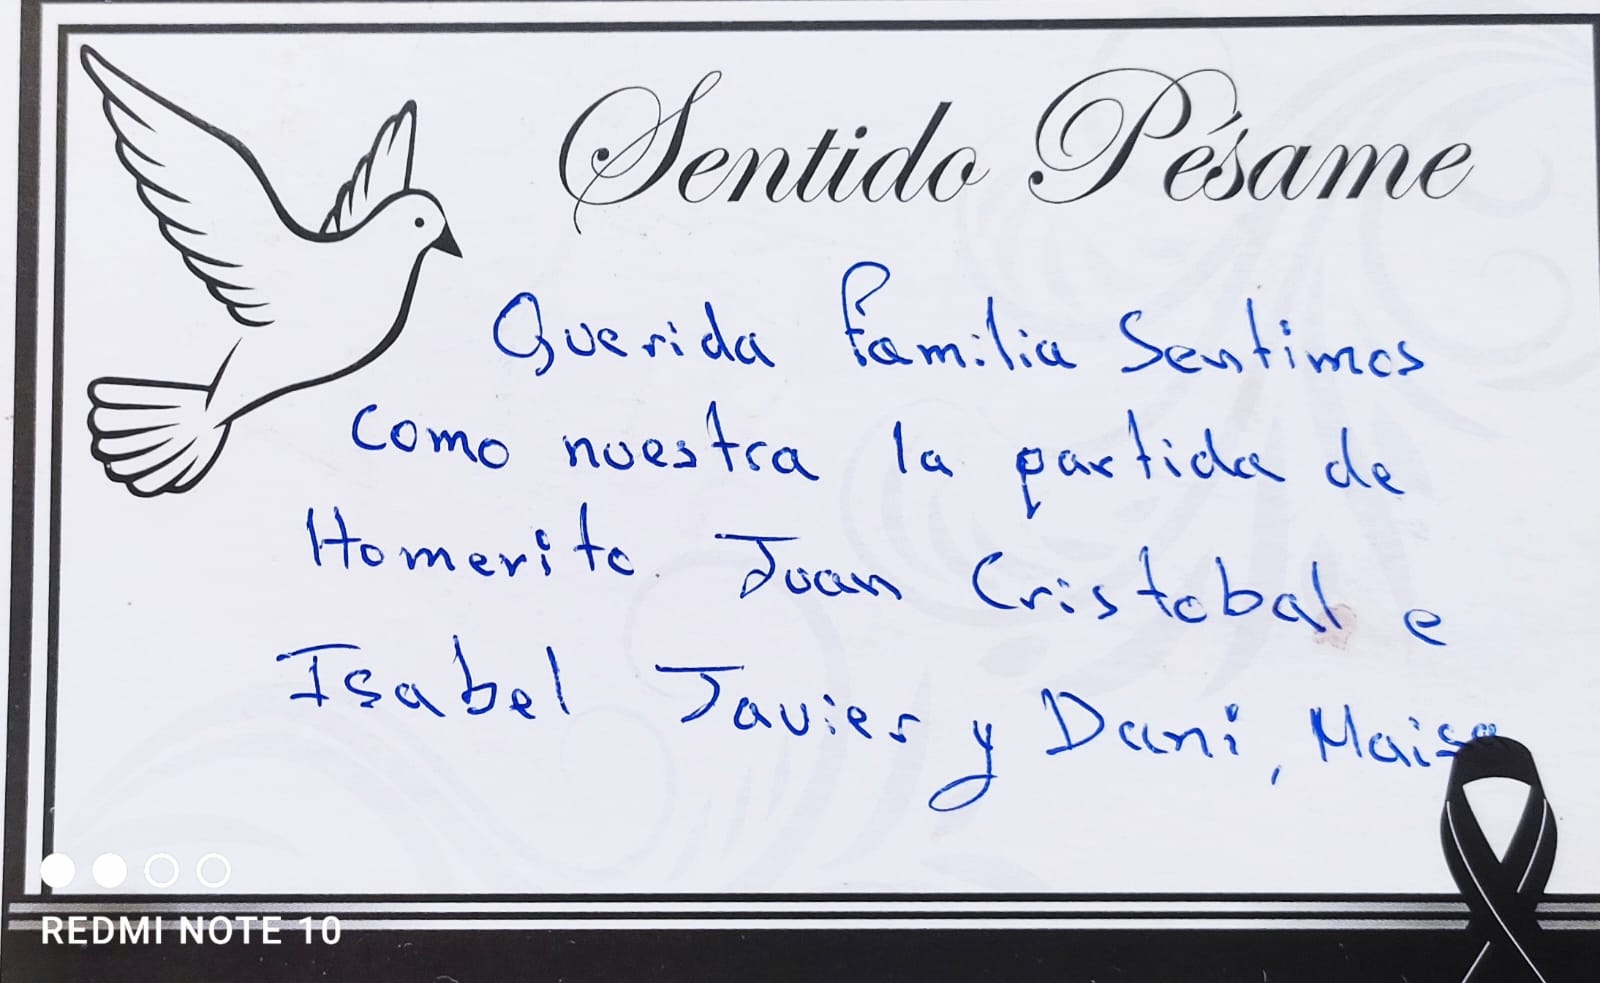 Sentido Pésame
Querida familia Sentimos
como nuestra la partida de
Homerito. Juan Cristobal e
Isabel Javier y Dani, Maisa
REDMI NOTE 10